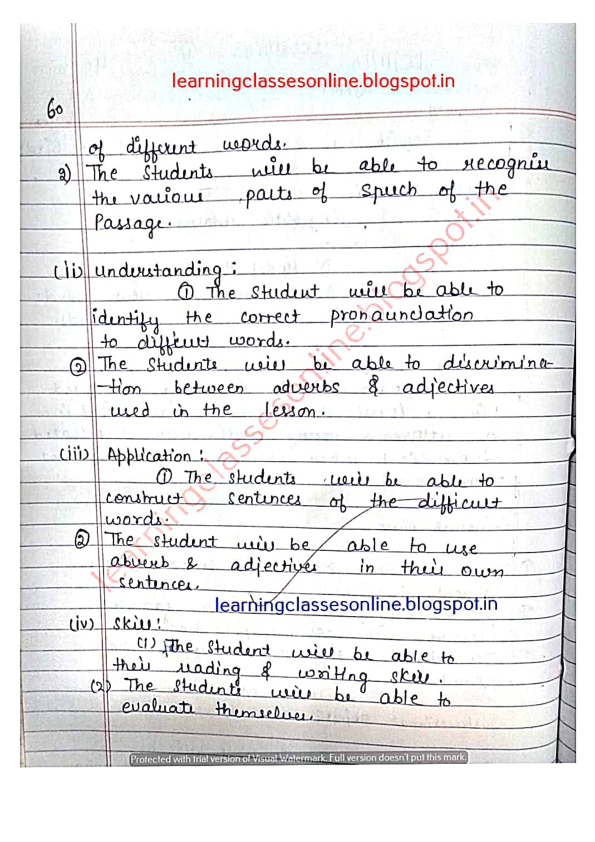 learningclassesonline.blogspot.in
60
of different words.
2) The students will be able to recognise
the various parts of speech of the
Passage.
(ii) Understanding :
① The student will be able to
identify the correct pronaunciation
to difficut words.
② The students will be able to discrimina-
-tion between adverbs & adjectives
used in the lesson.
(iii) Application :
① The students will be able to
construct sentences of the difficult
words.
② The student will be able to use
abverb & adjectives in their own
sentences.
learningclassesonline.blogspot.in
(iv) Skill :
(1) The student will be able to
their reading & writing skill.
(2) The students will be able to
evaluate themselves.
learningclassesonline.blogspot.in
Protected with trial version of Visual Watermark. Full version doesn't put this mark.